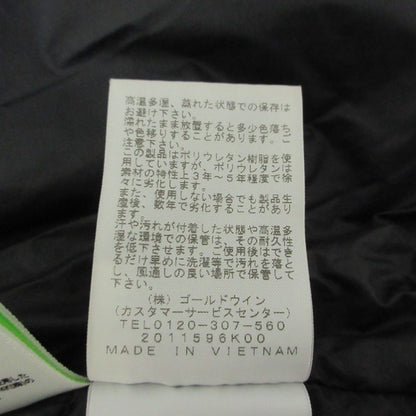 高温多湿、蒸れた状態での保存は
お避け下さい。
濡れたまま放置すると多少色落ち
や色移りすることがあります。ご
注意下さい。
この製品はポリウレタン樹脂を使
用していますが、ポリウレタンは
素材の特性上3年～5年程度で徐
々に劣化します。
また、使用しない場合でも製品生
産後、数年で劣化することがあり
ます。
汗や汚れが付着した状態や高温多
湿な環境での保管は、その耐久性
を低下させます。ご使用後はでき
るだけ早めに洗濯等で汚れを落と
し、風通しの良い場所で保管して
下さい。
(株) ゴールドウイン
(カスタマーサービスセンター)
TEL0120-307-560
2011596K00
MADE IN VIETNAM